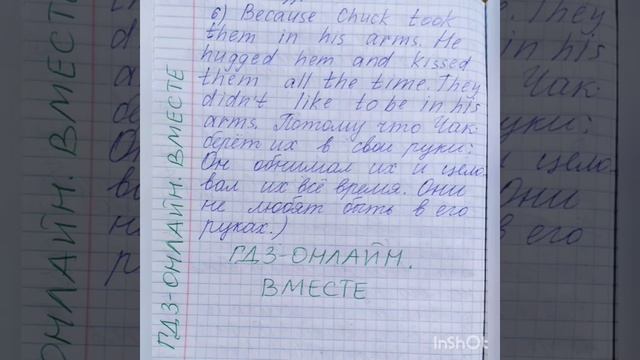 6) Because Chuck took
them in his arms. He
hugged hem and kissed
them all the time. They
didn't like to be in his
arms. Потому что Чак
берёт их в свои руки:
Он обнимал их и цело-
вал их всё время. Они
не любят быть в его
руках.)
ГДЗ-ОНЛАЙН.
ВМЕСТЕ
ГДЗ-ОНЛАЙН. ВМЕСТЕ
InShOt